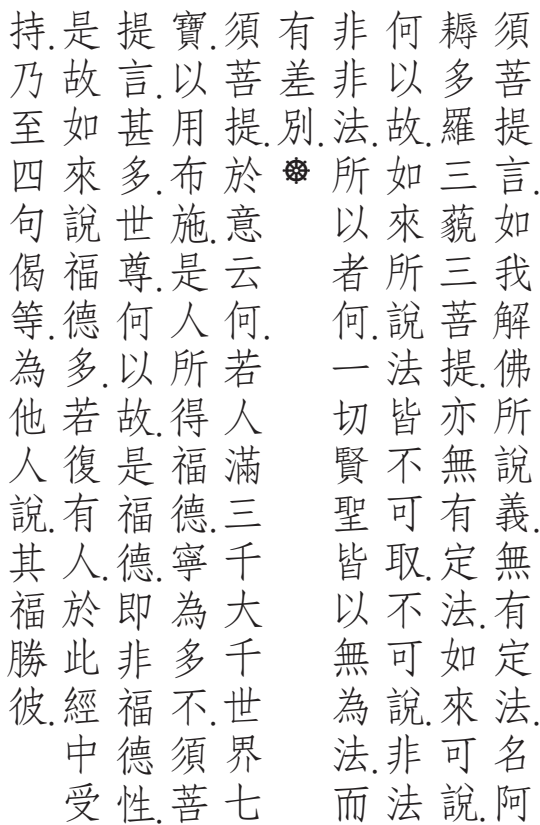 須菩提言.如我解佛所說義.無有定法.名阿
耨多羅三藐三菩提.亦無有定法.如來可說.
何以故.如來所說法皆不可取.不可說.非法
非非法.所以者何.一切賢聖皆以無為法.而
有差別.☸
須菩提.於意云何.若人滿三千大千世界七
寶.以用布施.是人所得福德.寧為多不.須菩
提言.甚多.世尊.何以故.是福德.即非福德性.
是故如來說福德多.若復有人.於此經中受
持.乃至四句偈等.為他人說.其福勝彼.